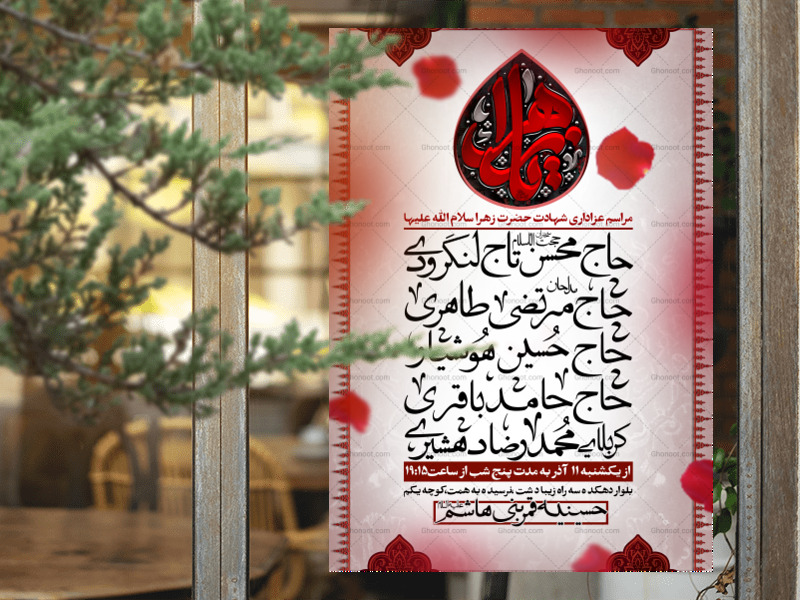 یا زهرا
مراسم عزاداری شهادت حضرت زهرا سلام الله علیها
حجت الاسلام
حاج محسن تاج لنگرودی
بااحان
حاج مرتضی طاهری
حاج حسین هوشیار
حاج حامد باقری
کربلایی محمدرضا دهشیری
از یکشنبه ۱۱ آذر به مدت پنج شب از ساعت ۱۹:۱۵
بلوار دهکده سه راه زیبا دشت نرسیده به همت،کوچه یکم
حسینیه قمر بنی هاشم
Ghonoot.com